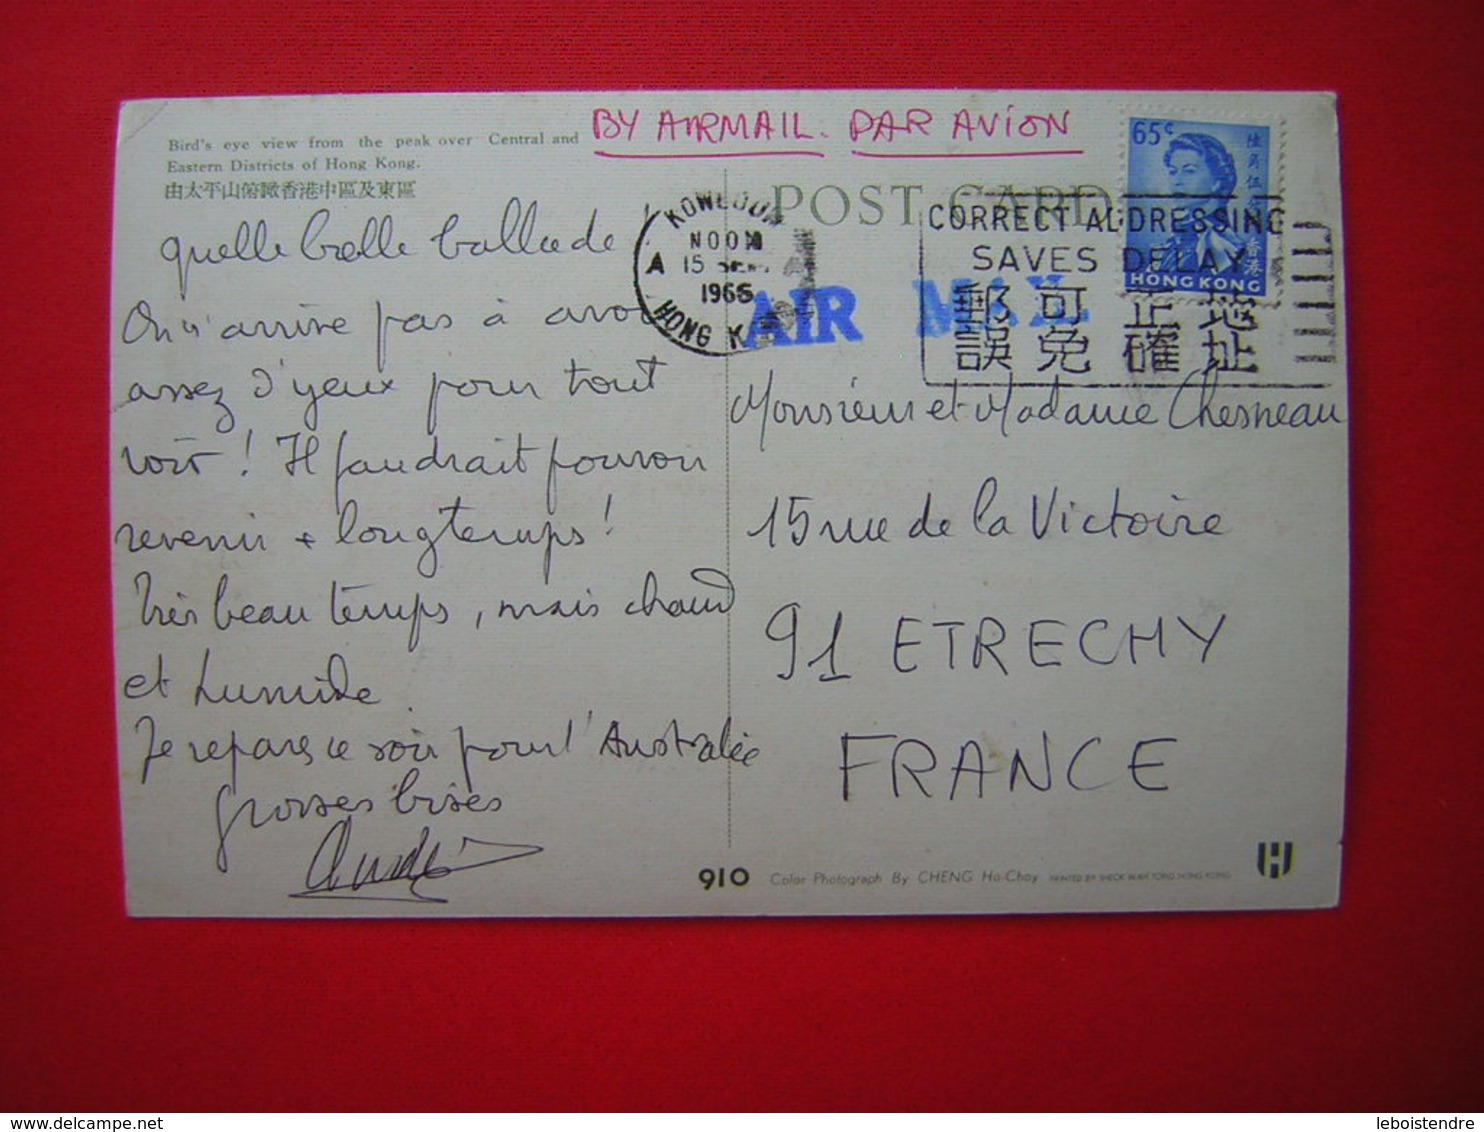 Bird's eye view from the peak over Central and
Eastern Districts of Hong Kong.
由太平山俯瞰香港中區及東區
BY AIRMAIL. PAR AVION
quelle belle ballade !
On n'arrive pas à avoir
assez d'yeux pour tout
voir ! Il faudrait pouvoir
revenir + longtemps !
Très beau temps, mais chaud
et humide.
Je repars ce soir pour l'Australie
grosses bises
POST CARD
KOWLOON
NOON
A 15 SEP
1966
HONG KONG
AIR MAIL
CORRECT ADDRESSING
SAVES DELAY
郵可正地
誤免確址
65¢
香港
HONG KONG
Monsieur et Madame Chesneau
15 rue de la Victoire
91 ETRECHY
FRANCE
910 Color Photograph By CHENG Ho-Choy PRINTED BY SHECK WAH TONG HONG KONG
leboistendre